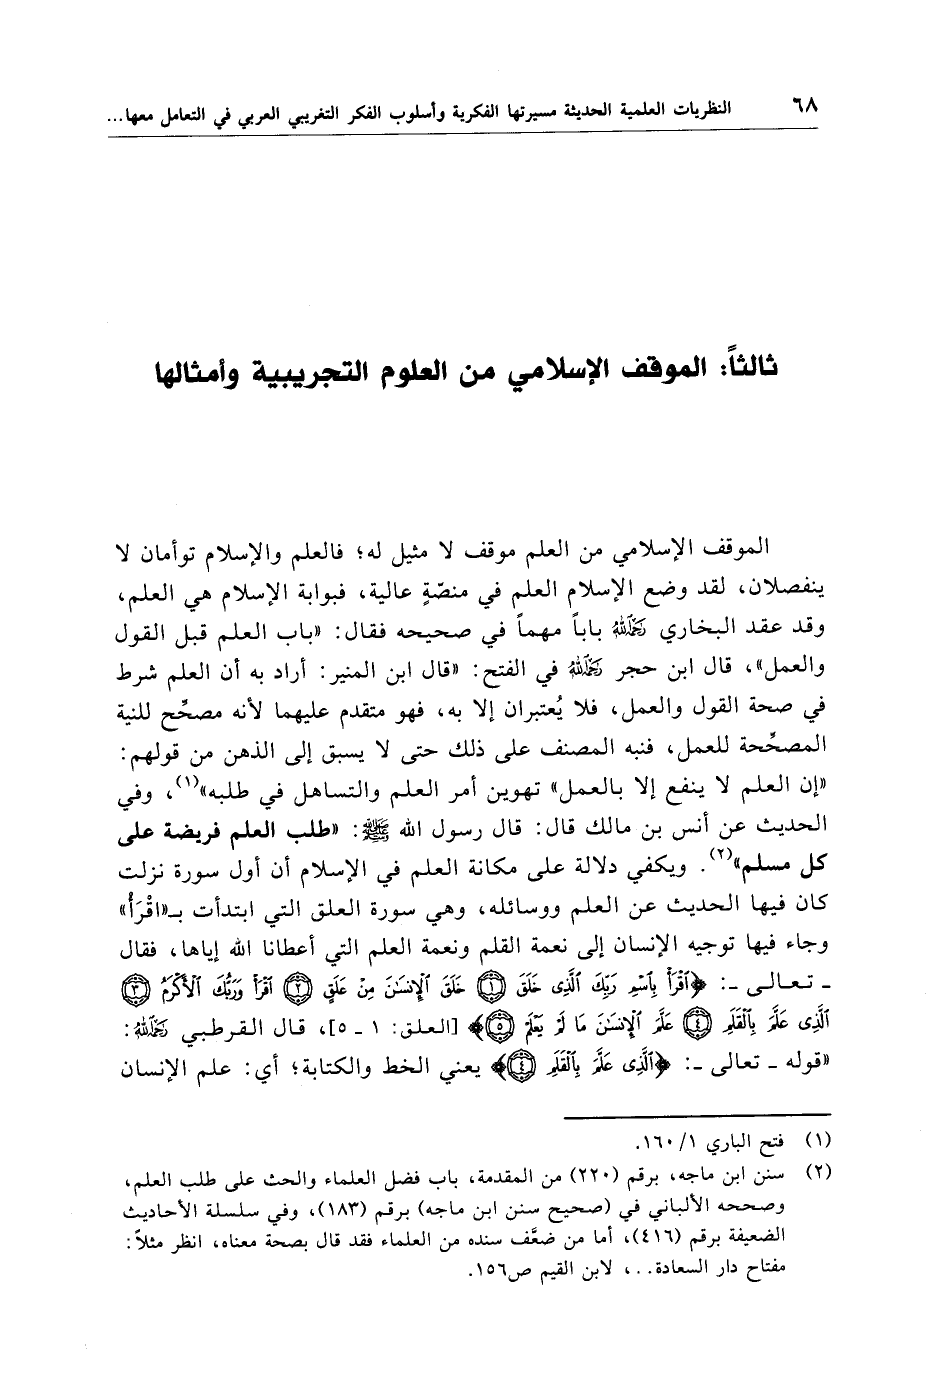 ٦٨ النظريات العلمية الحديثة مسيرتها الفكرية وأسلوب الفكر التغريبي العربي في التعامل معها...
ثالثاً: الموقف الإسلامي من العلوم التجريبية وأمثالها
الموقف الإسلامي من العلم موقف لا مثيل له؛ فالعلم والإسلام توأمان لا
ينفصلان، لقد وضع الإسلام العلم في منصّةٍ عالية، فبوابة الإسلام هي العلم،
وقد عقد البخاري رَحِمَهُ اللَّهُ باباً مهماً في صحيحه فقال: «باب العلم قبل القول
والعمل»، قال ابن حجر رَحِمَهُ اللَّهُ في الفتح: «قال ابن المنير: أراد به أن العلم شرط
في صحة القول والعمل، فلا يُعتبران إلا به، فهو متقدم عليهما لأنه مصحِّح للنية
المصحِّحة للعمل، فنبه المصنف على ذلك حتى لا يسبق إلى الذهن من قولهم:
«إن العلم لا ينفع إلا بالعمل» تهوين أمر العلم والتساهل في طلبه»(١)، وفي
الحديث عن أنس بن مالك قال: قال رسول الله ﷺ: «طلب العلم فريضة على
كل مسلم»(٢). ويكفي دلالة على مكانة العلم في الإسلام أن أول سورة نزلت
كان فيها الحديث عن العلم ووسائله، وهي سورة العلق التي ابتدأت بـ«اقْرَأْ»
وجاء فيها توجيه الإنسان إلى نعمة القلم ونعمة العلم التي أعطانا الله إياها، فقال
ـ تعالى ـ: ﴿ٱقْرَأْ بِٱسْمِ رَبِّكَ ٱلَّذِى خَلَقَ ۝١ خَلَقَ ٱلْإِنسَٰنَ مِنْ عَلَقٍ ۝٢ ٱقْرَأْ وَرَبُّكَ ٱلْأَكْرَمُ ۝٣
ٱلَّذِى عَلَّمَ بِٱلْقَلَمِ ۝٤ عَلَّمَ ٱلْإِنسَٰنَ مَا لَمْ يَعْلَمْ ۝٥﴾ [العلق: ١ ـ ٥]، قال القرطبي رَحِمَهُ اللَّهُ:
«قوله ـ تعالى ـ: ﴿ٱلَّذِى عَلَّمَ بِٱلْقَلَمِ ۝٤﴾ يعني الخط والكتابة؛ أي: علم الإنسان
(١) فتح الباري ١/ ١٦٠.
(٢) سنن ابن ماجه، برقم (٢٢٠) من المقدمة، باب فضل العلماء والحث على طلب العلم،
وصححه الألباني في (صحيح سنن ابن ماجه) برقم (١٨٣)، وفي سلسلة الأحاديث
الضعيفة برقم (٤١٦)، أما من ضعَّف سنده من العلماء فقد قال بصحة معناه، انظر مثلاً:
مفتاح دار السعادة..، لابن القيم ص١٥٦.